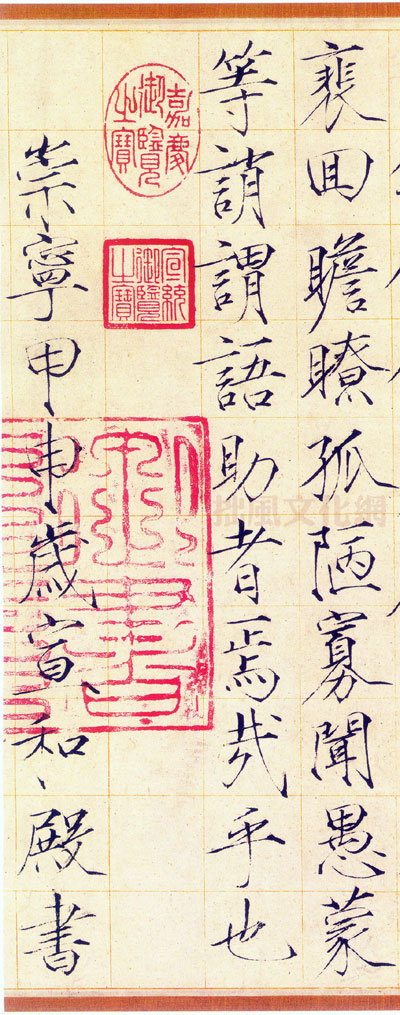 裵回瞻瞭孤陋寡聞愚蒙
等誚謂語助者焉哉乎也
嘉慶
御覽
之寶
宣統
御覽
之寶
崇寧甲申歲宣和殿書
拙風文化網